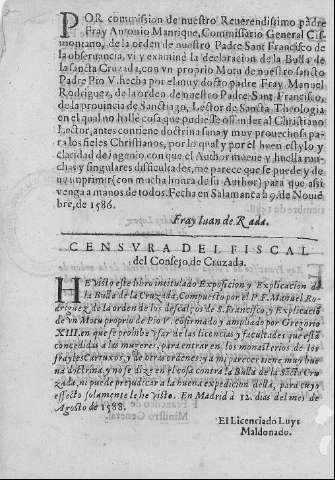 POR commission de nuestro Reuerendissimo padre
Fray Antonio Manrique, Commissario General Cis-
montano, de la orden de nuestro Padre Sant Francisco de
la obseruancia, vi y examiné la declaracion de la Bulla de
la sancta Cruzada, con vn proprio Motu de nuestro sancto
Padre Pio V. hecha por el muy docto padre Fray Manuel
Rodriguez, de la orden de nuestro Padre Sant Francisco,
de la prouincia de Sanctiago, Lector de Sancta Theologia
en el qual no hallé cosa que pudiesse offender al Christiano
Lector, antes contiene doctrina sana y muy prouechosa pa-
ra los fieles Christianos, por lo qual y por el buen estylo y
claridad de ingenio con que el Author mueue y huella mu-
chas y singulares difficultades, me parece que se puede y de-
ue imprimir (con mucha honra de su Author) para que assi
venga a manos de todos. Fecha en Salamanca à 9. de Nouiē-
bre, de 1586.
Fray Iuan de Rada.
CENSVRA DEL FISCAL
del Consejo, de Cruzada.
HE visto este libro intitulado Exposicion y Explicacion de
la Bulla de la Cruzada, Compuesto por el P. F. Manuel Ro-
driguez de la orden de los descalços de S. Francisco, y Explicaciō
de vn Motu proprio de Pio V. cōfirmado y ampliado por Gregorio
XIII. en que se prohibe vsar de las licencias y facultades que està
concedidas a las mugeres, para entrar en los monasterios de los
frayles Cartuxos, y de otras ordenes: y a mi parecer tiene muy bue
na doctrina, y no se dize en el cosa contra la Bulla de la Sācta Cru
zada, ni puede prejudicar a la buena expedicion della, para cuyo
effecto solamente le he visto. En Madrid à 12. dias del mes de
Agosto de 1588.
El Licenciado Luys
Maldonado.